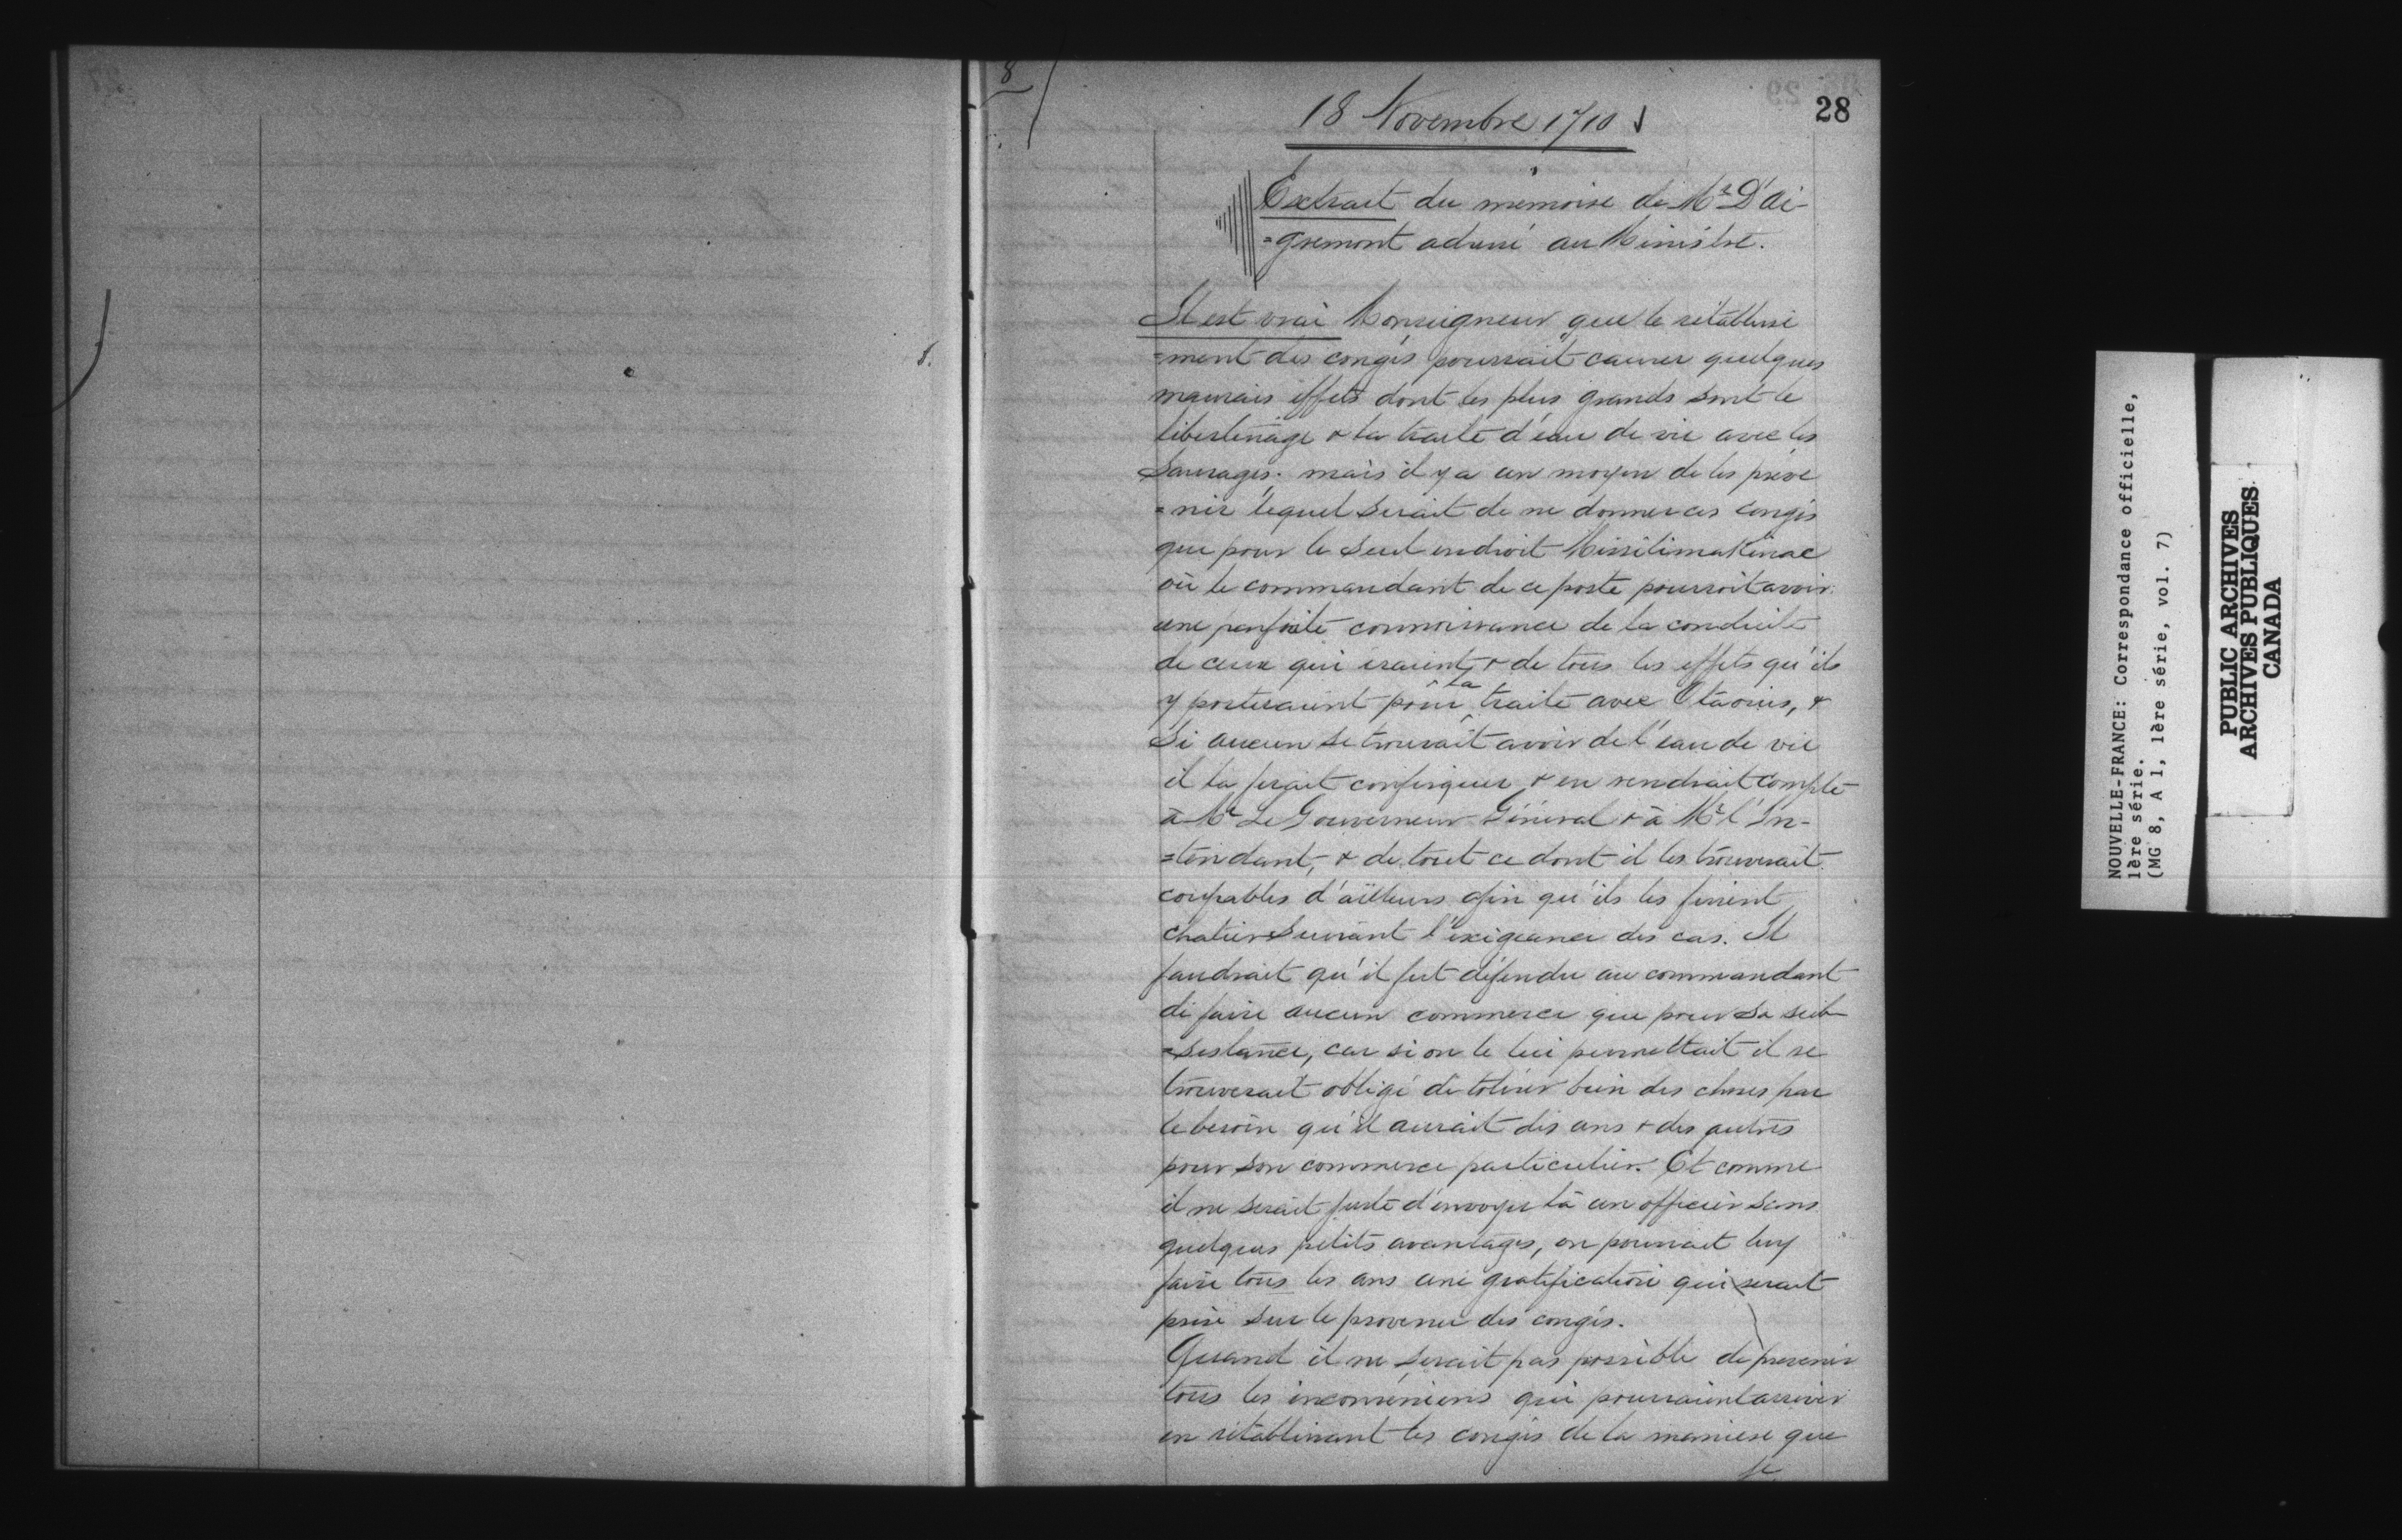 8
28
18 Novembre 1710
Extrait du mémoire de Mr D'Ai-
=gremont adressé au Ministre.
Il est vrai Monseigneur que le rétablisse
=ment des congés pourrait causer quelques
mauvais effets dont les plus grands sont le
libertinage & la traite d'eau de vie avec les
Sauvages; mais il y a un moyen de les préve
=nir lequel serait de ne donner ces congés
que pour le seul endroit Missilimakinac
où le commandant de ce poste pourroit avoir
une parfaite connoissance de la conduite
de ceux qui iraient, & de tous les effets qu'ils
y porteraient pour la traite avec Otaouis, &
Si aucun se trouvait avoir de l'eau de vie
il la ferait confisquer & en rendrait compte
à Mr Le Gouverneur Général & à Mr l'In-
=tendant, & de tout ce dont il les trouverait
coupables d'ailleurs afin qu'ils les fissent
chatier suivant l'exigeance des cas. Il
faudrait qu'il fut défendu au commandant
de faire aucun commerce que pour sa sub-
=sistance, car si on le lui permettait il se
trouverait obligé de tolérer bien des choses par
le besoin qu'il aurait des uns & des autres
pour son commerce particulier. Et comme
il ne serait juste d'envoyer là un officier sans
quelques petits avantages, on pourrait luy
faire tous les ans une gratification qui serait
prise sur le provenu des congés.
Quand il ne serait pas possible de prevenir
tous les inconvéniens qui pourraient arriver
en rétablissant les congés de la maniere que
je
NOUVELLE-FRANCE: Correspondance officielle,
1ère série.
(MG 8, A 1, 1ère série, vol. 7)
PUBLIC ARCHIVES
ARCHIVES PUBLIQUES
CANADA